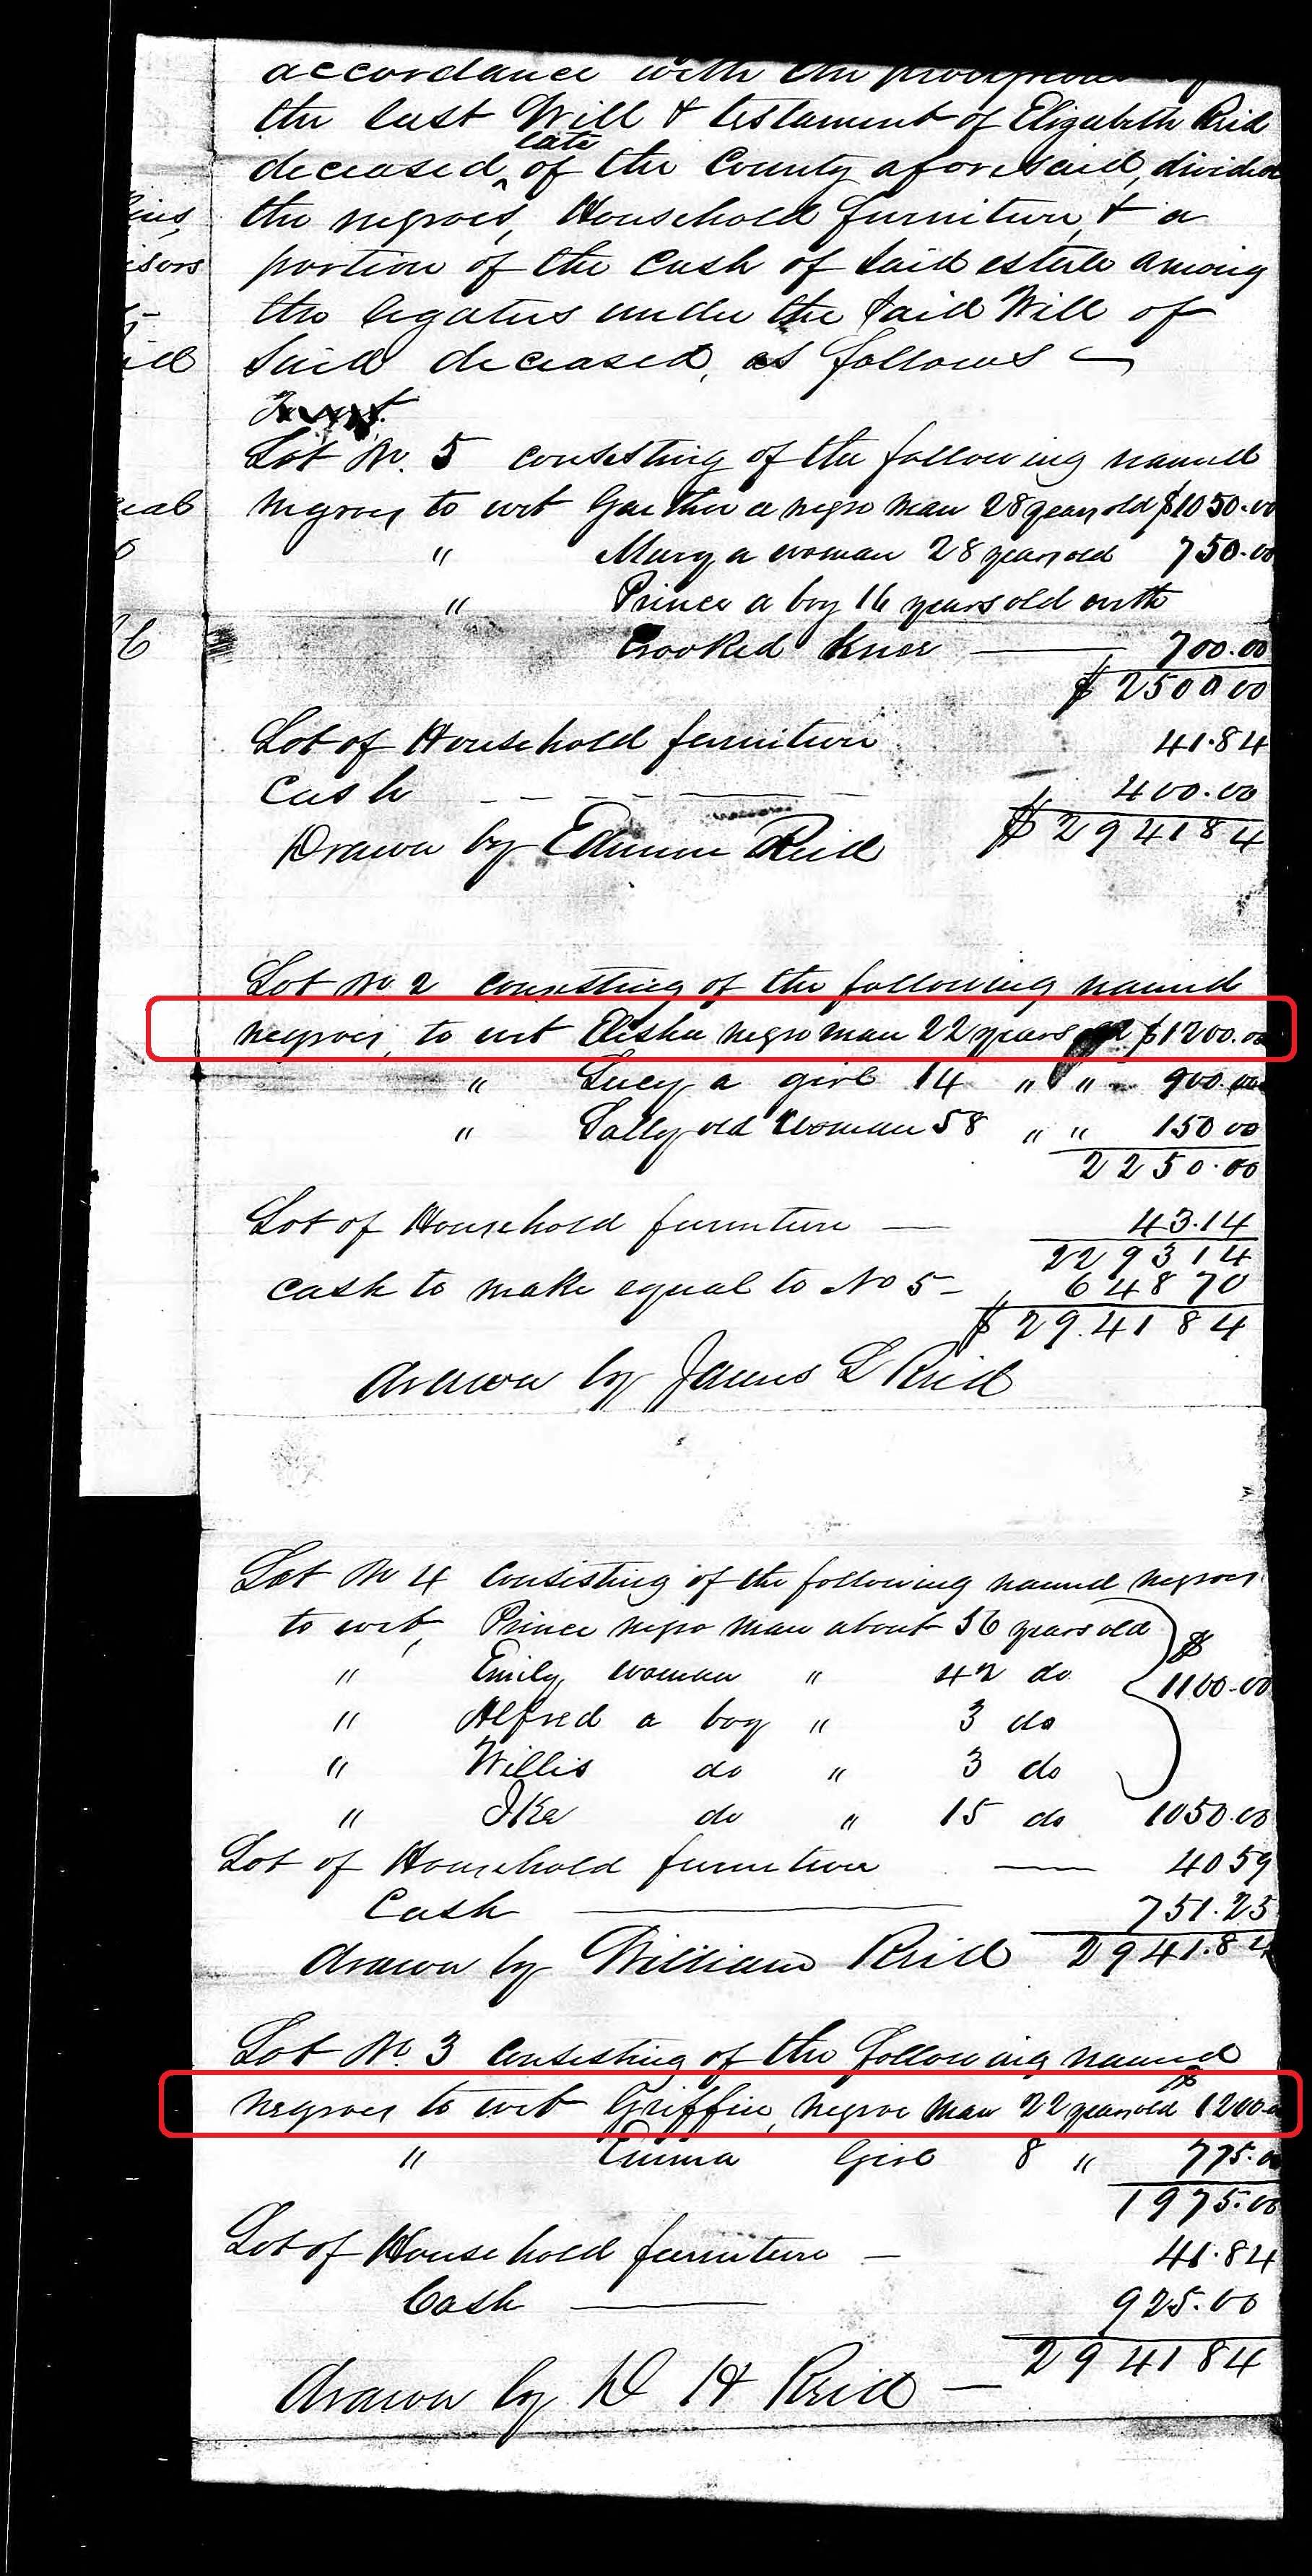 accordance with the provisions of
the last Will & testament of Elizabeth Reid
late
deceased, of the County aforesaid, divided
the negroes, Household furniture, & a
portion of the cash of said estate among
the legatees under the said Will of
said deceased, as follows
Lot No. 5 consisting of the following named
negroes to wit Gaither a negro man 28 years old $1050.00
" Mary a woman 28 years old 750.00
" Prince a boy 16 years old with
Crooked Knee 700.00
$2500 00
Lot of Household furniture 41.84
Cash 400.00
Drawn by Edmun Reid $2941 84
Lot No 2 consisting of the following named
negroes, to wit Elisha negro man 22 years old $1200.00
" Lucy a girl 14 " " 900.00
" Sally old Woman 58 " " 150 00
2250.00
Lot of Household furniture 43.14
2293 14
cash to make equal to No 5 648 70
$2941 84
drawn by James L Reid
Lot No 4 Consisting of the following named negroes
to wit, Prince negro man about 56 years old $
" Emily woman " 42 do 1100.00
" Alfred a boy " 3 do
" Willis do " 3 do
" Ike do " 15 do 1050.00
Lot of Household furniture 40 59
Cash 751.25
drawn by William Reid 2941.84
Lot No. 3 Consisting of the following named
negroes to wit Griffin, negroe man 22 years old $1200.00
" Emma Girl 8 " 775.00
1975.00
Lot of Household furniture 41.84
Cash 925.00
2941 84
drawn by D H Reid